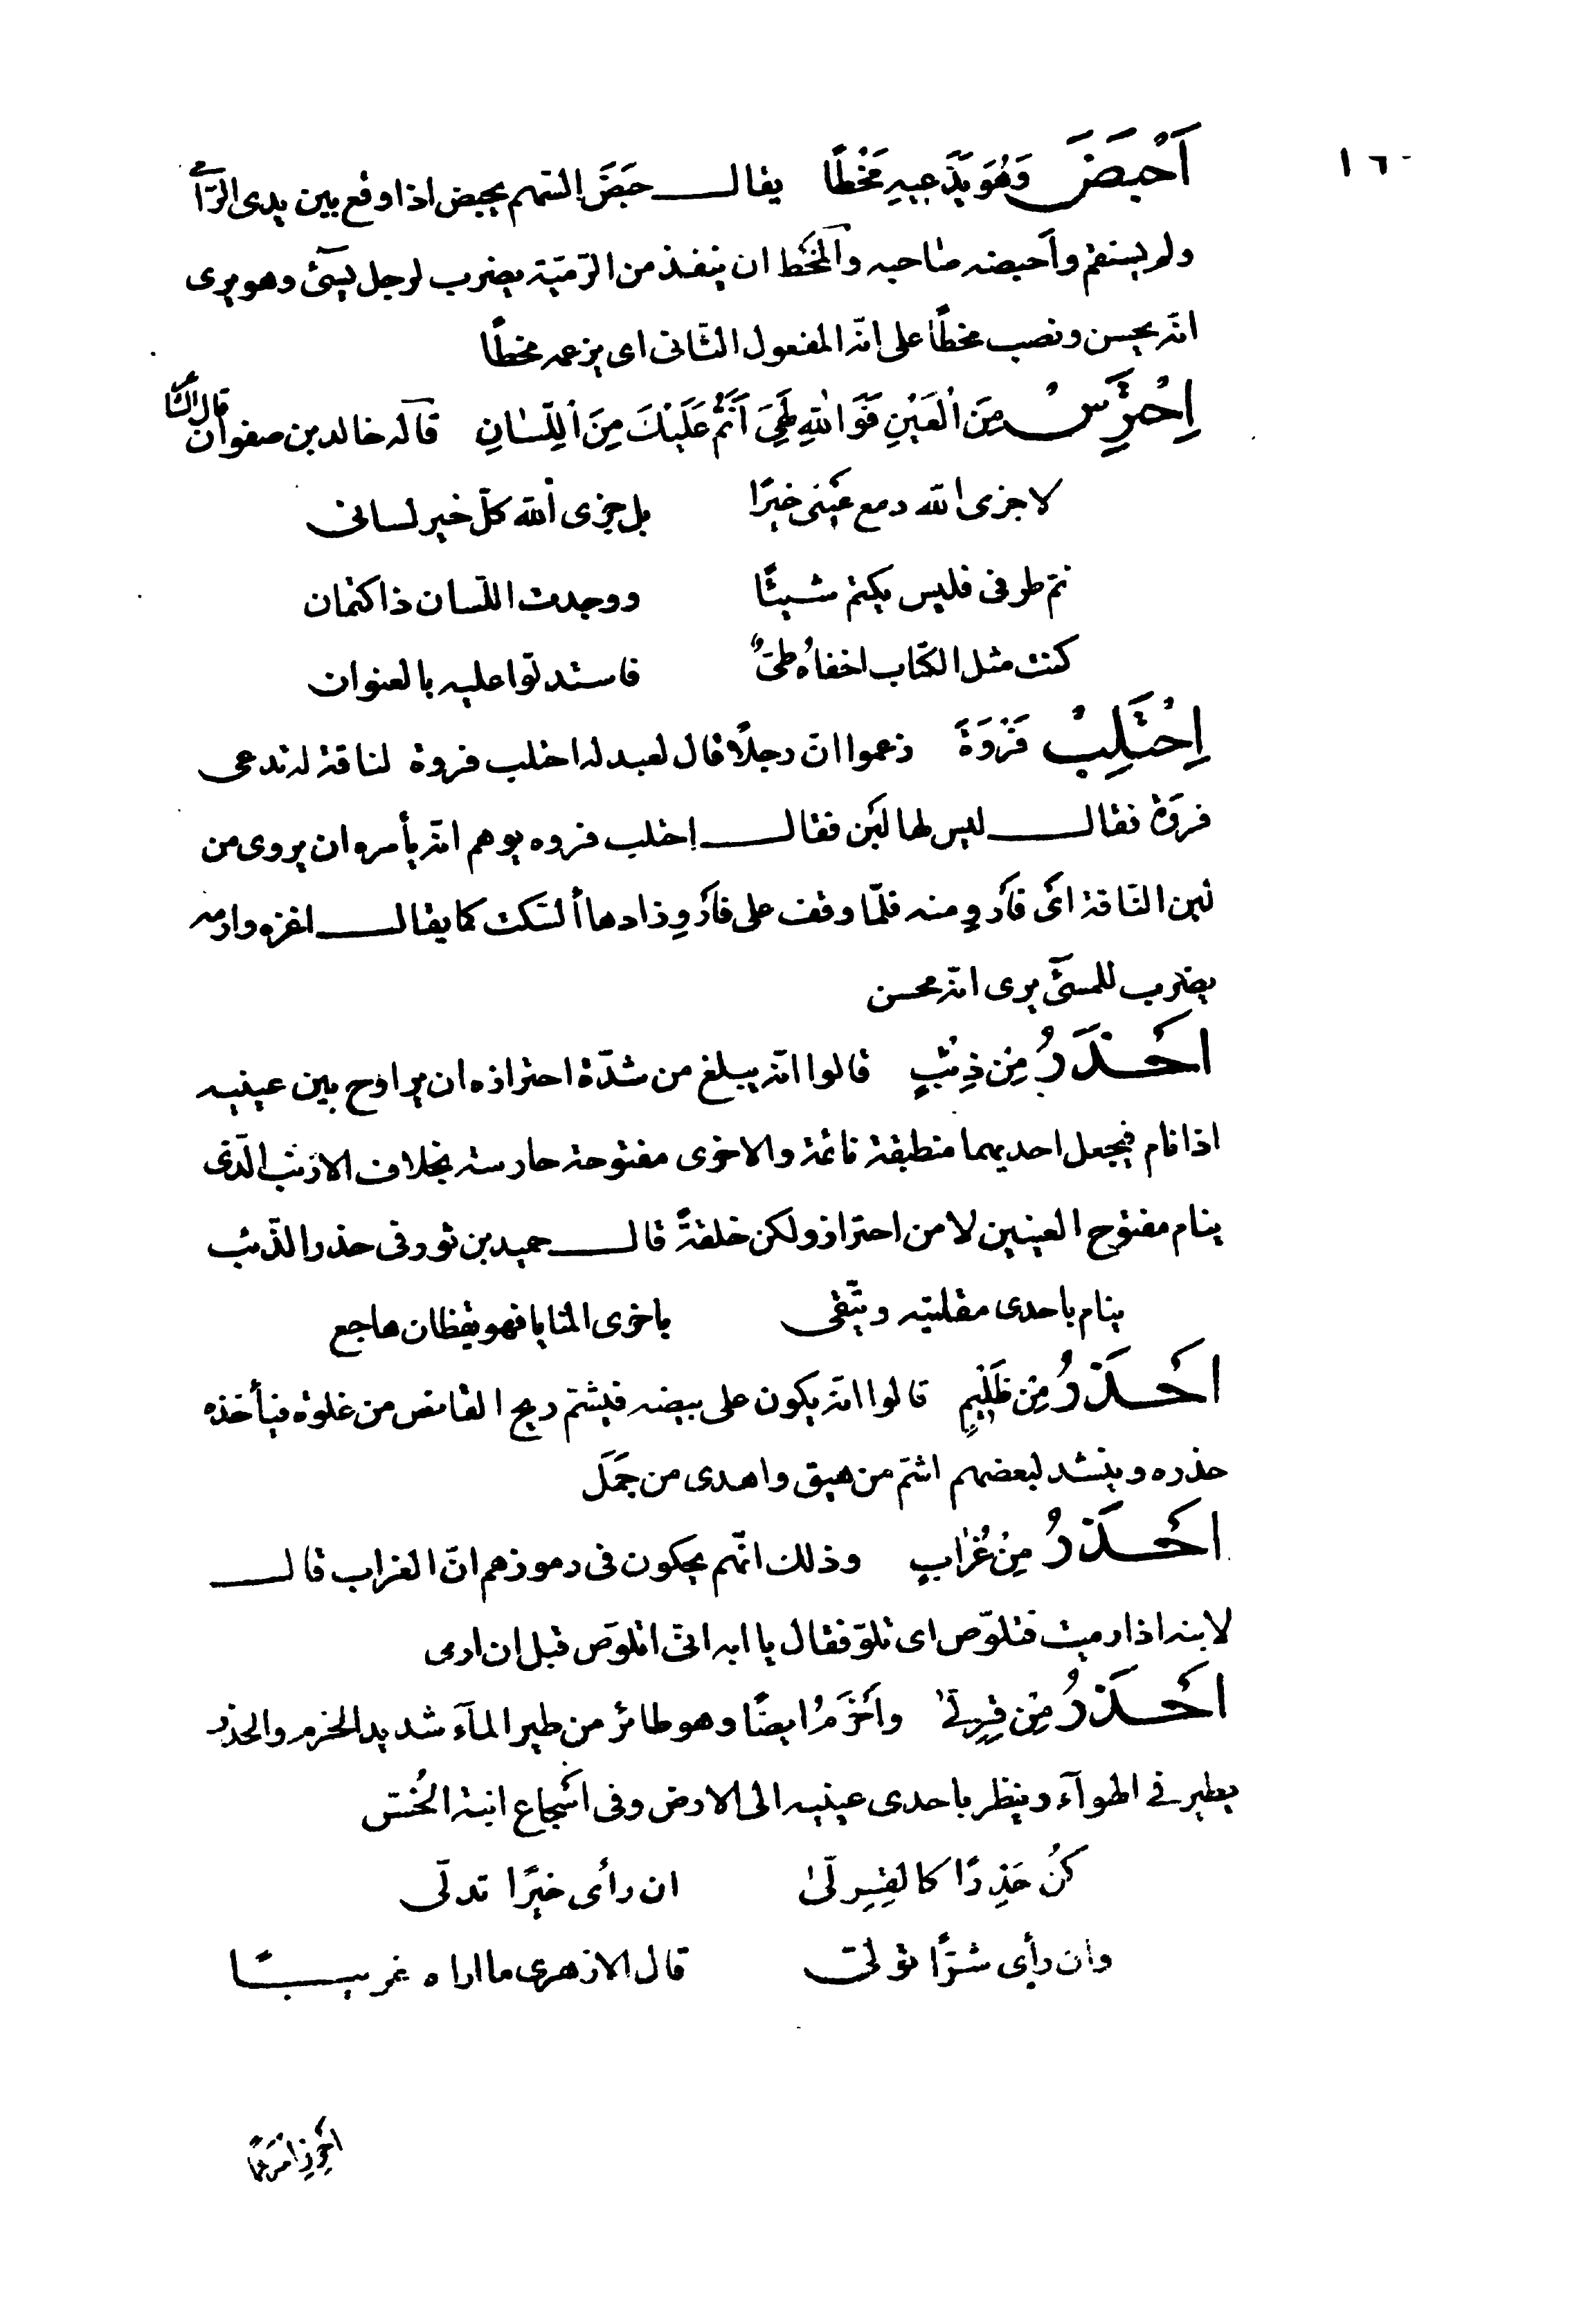 ١٦٠
اَحْبَضَ وَهُوَ يَدَّعِيهِ مَخْطًا يقال حَبَضَ السّهم يحبض اذا وقع بين يدى الرّامى
ولم يستقم وأحبضه صاحبه والمَخْط ان ينفذ من الرّميّة يضرب لرجل يسئ وهو يرى
انّه يحسن ونصب مخطًا على انّه المفعول الثّانى اى يزعمه مخطًا
اِحْتَرِسْ مِنَ الْعَيْنِ فَوَاللهِ لَهِىَ أَنَمُّ عَلَيْكَ مِنَ اللِّسَانِ قاله خالد بن صفوان قال الشاعر
لا جزى الله دمع عَينى خيرًا بل جزى الله كلّ خير لسانى
نمّ طرفى فليس يكتم شيئًا ووجدت اللّسان ذا كتمان
كنت مثل الكتاب اخفاه طىٌّ فاستدلّوا عليه بالعنوان
اِحْتَلِبْ فَرْوَةً زعموا انّ رجلًا قال لعبد له احلب فروة لناقة له تدعى
فروَة فقال ليس لها لبَن فقال احلب فروه يوهم انّه يأمره ان يروى من
لبن النّاقة اىْ فَأرْوِ منه فلمّا وقف على فَأرْوِ زادها أ لسّكت كما يقال اغزه وارمه
يضرب للمسئ يرى انّه محسن
احْذَرُ مِنْ ذِئْبٍ قالوا انّه يبلغ من شدّة احترازه ان يراوح بين عينيه
اذا نام فيجعل احديهما منطبقة نائمة والاخرى مفتوحة حارسة بخلاف الارنب الّذى
ينام مفتوح العينين لا من احتراز ولكن خلقةً قال حميد بن ثور فى حذر الذّئب
ينام باحدى مقلتيه ويتّقى باخرى المنايا فهو يقظان هاجع
احْذَرُ مِنْ ظَلِيْمٍ قالوا انّه يكون على بيضه فيشتمّ ريح القانص من غلوة فيأخذه
حذره وينشد لبعضهم اشمّ من هيق واهدى من جَمَل
احْذَرُ مِنْ غُرَابٍ وذلك انّهم يحكون فى رموزهم انّ الغراب قال
لابنه اذا رميت فتلوّص اى تلوّ فقال يا ابه انّى اتلوّص قبل ان ارمى
احْذَرُ مِنْ قِرِلَّى واَحْزَمُ ايضًا وهو طائر من طير المآء شديد الحزم والحذر
يطير فى الهوآء وينظر باحدى عينيه الى الارض وفى أسْجاع ابنة الخُسّ
كُنْ حَذِرًا كالقِرِلّى ان رأى خيرًا تدلّى
وان رأى شرًّا تولّى قال الازهرى ما اراه عربيًّا